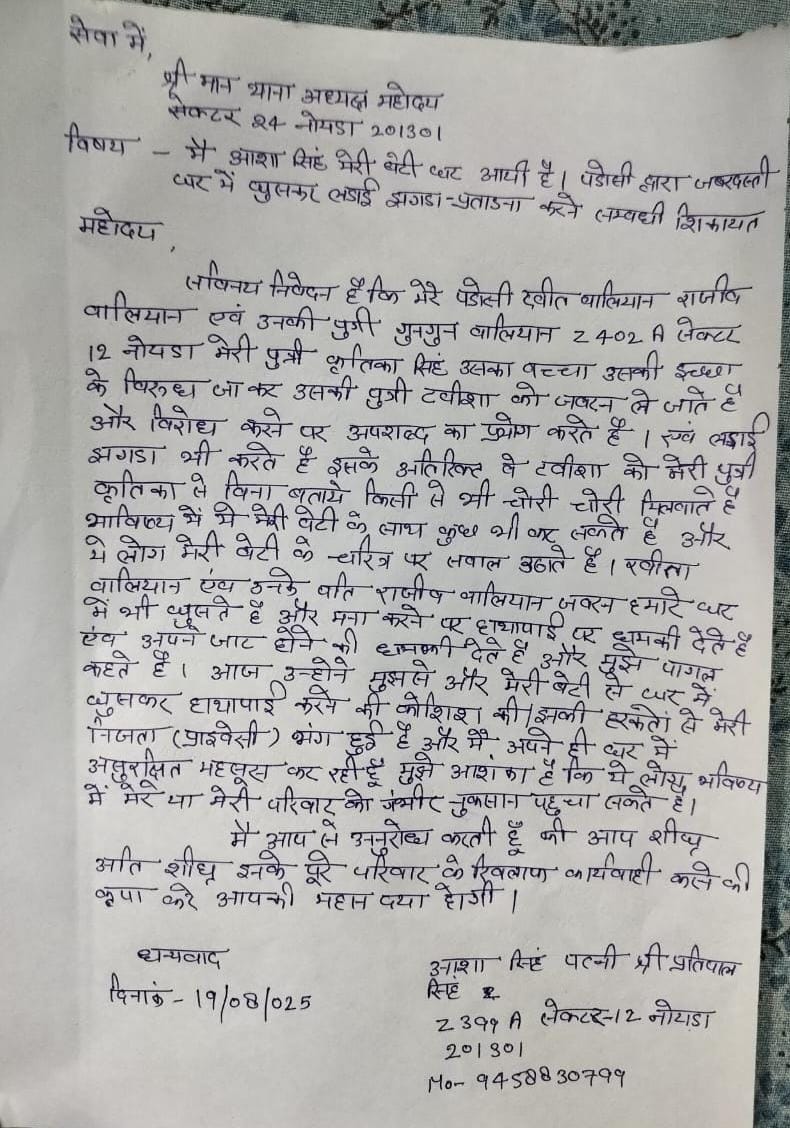 सेवा में,
श्री मान थाना अध्यक्ष महोदय
सेक्टर 24 नोयडा 201301
विषय - मै आशा सिहं मेरी बेटी घर आयी है। पडोसी द्वारा जबरदस्ती
घर में घुसकर लडाई झगडा-प्रताडना करने सम्बधी शिकायत
महोदय,
सविनय निवेदन है कि मेरे पडोसी रवीत बालियान राजीव
वालियान एवं उनकी पुत्री गुनगुन बालियान Z 402 A सेक्टर
12 नोयडा मेरी पुत्री कृतिका सिहं उसका बच्चा उसकी इच्छा
के विरुध जा कर उसकी पुत्री टवीशा को जबरन ले जाते है
और विरोध करने पर अपशब्द का प्रयोग करते है । एवं लडाई
झगडा भी करते है इसके अतिरिक्त वे टवीशा को मेरी पुत्री
कृतिका से विना बताये किसी से भी चोरी चोरी मिलवाते है
भाविष्य में ये मेरी बेटी के साथ कुछ भी कर सकते है और
ये लोग मेरी बेटी के चरित्र पर सवाल उठाते है । रवीता
वालियान एंव उनके पति राजीव वालियान जबरन हमारे घर
में भी घुसते है और मना करने पर हाथापाई पर धमकी देते है
एंव अपने जाट होने की धामकी देते है और मुझे पागल
कहते है । आज उन्होने मुझसे और मेरी बेटी से घर में
घुसकर हाथापाई करने की कोशिश की। इनकी हरकतों से मेरी
निजता (प्राइवेसी) भंग हुई है और मैं अपने ही घर में
असुरक्षित महसूस कर रही हूँ मुझे आशंका है कि ये लोग भविष्य
में मेरे या मेरी परिवार को गंभीर नुकसान पहुचा सकते है।
मै आप से अनुरोध करती हूँ की आप शीघ्र
अति शीघ्र इनके पूरे परिवार के खिलाफ कार्यवाही करने की
कृपा करे आपकी महान दया होगी ।
धन्यवाद
दिनांक - 19/08/025
आशा सिहं पत्नी श्री प्रतिपाल
सिहं
Z 399 A सेक्टर-12 नोयडा
201301
Mo- 9458830799